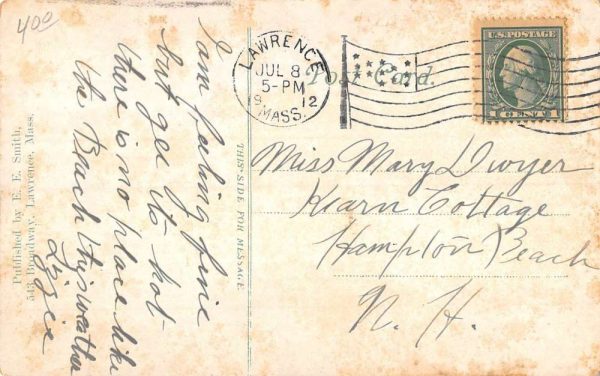 400
I am feeling fine
but gee its hot
there is no place like
the Beach this weather
Lizzie
Published by E. E. Smith,
543 Broadway, Lawrence, Mass.
THIS SIDE FOR MESSAGE.
Post Card.
LAWRENCE
JUL 8
5-PM
19 12
MASS.
U.S. POSTAGE
1 CENT 1
Miss Mary Dwyer
Kearn Cottage
Hampton Beach
N. H.